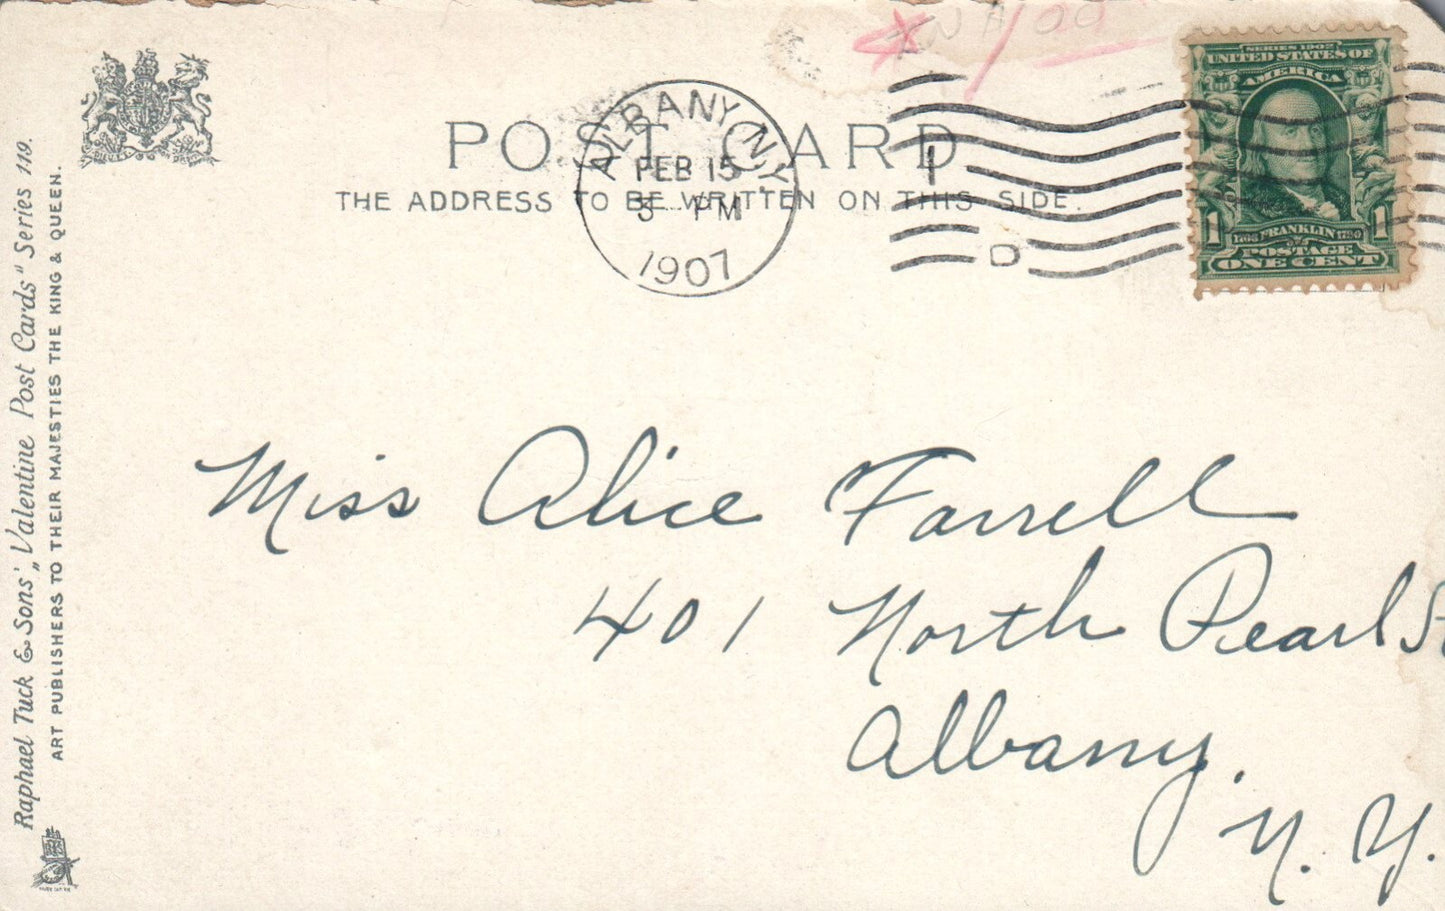 POST CARD
THE ADDRESS TO BE WRITTEN ON THIS SIDE.
ALBANY, N.Y.
FEB 15
5 - PM
1907
1
D
SERIES 1902
UNITED STATES OF
AMERICA
1 1
1706 FRANKLIN 1790
POSTAGE
ONE CENT
Raphael Tuck & Sons' „Valentine Post Cards" Series 119.
ART PUBLISHERS TO THEIR MAJESTIES THE KING & QUEEN.
Miss Alice Farrell
401 North Pearl St
Albany.
N. Y.